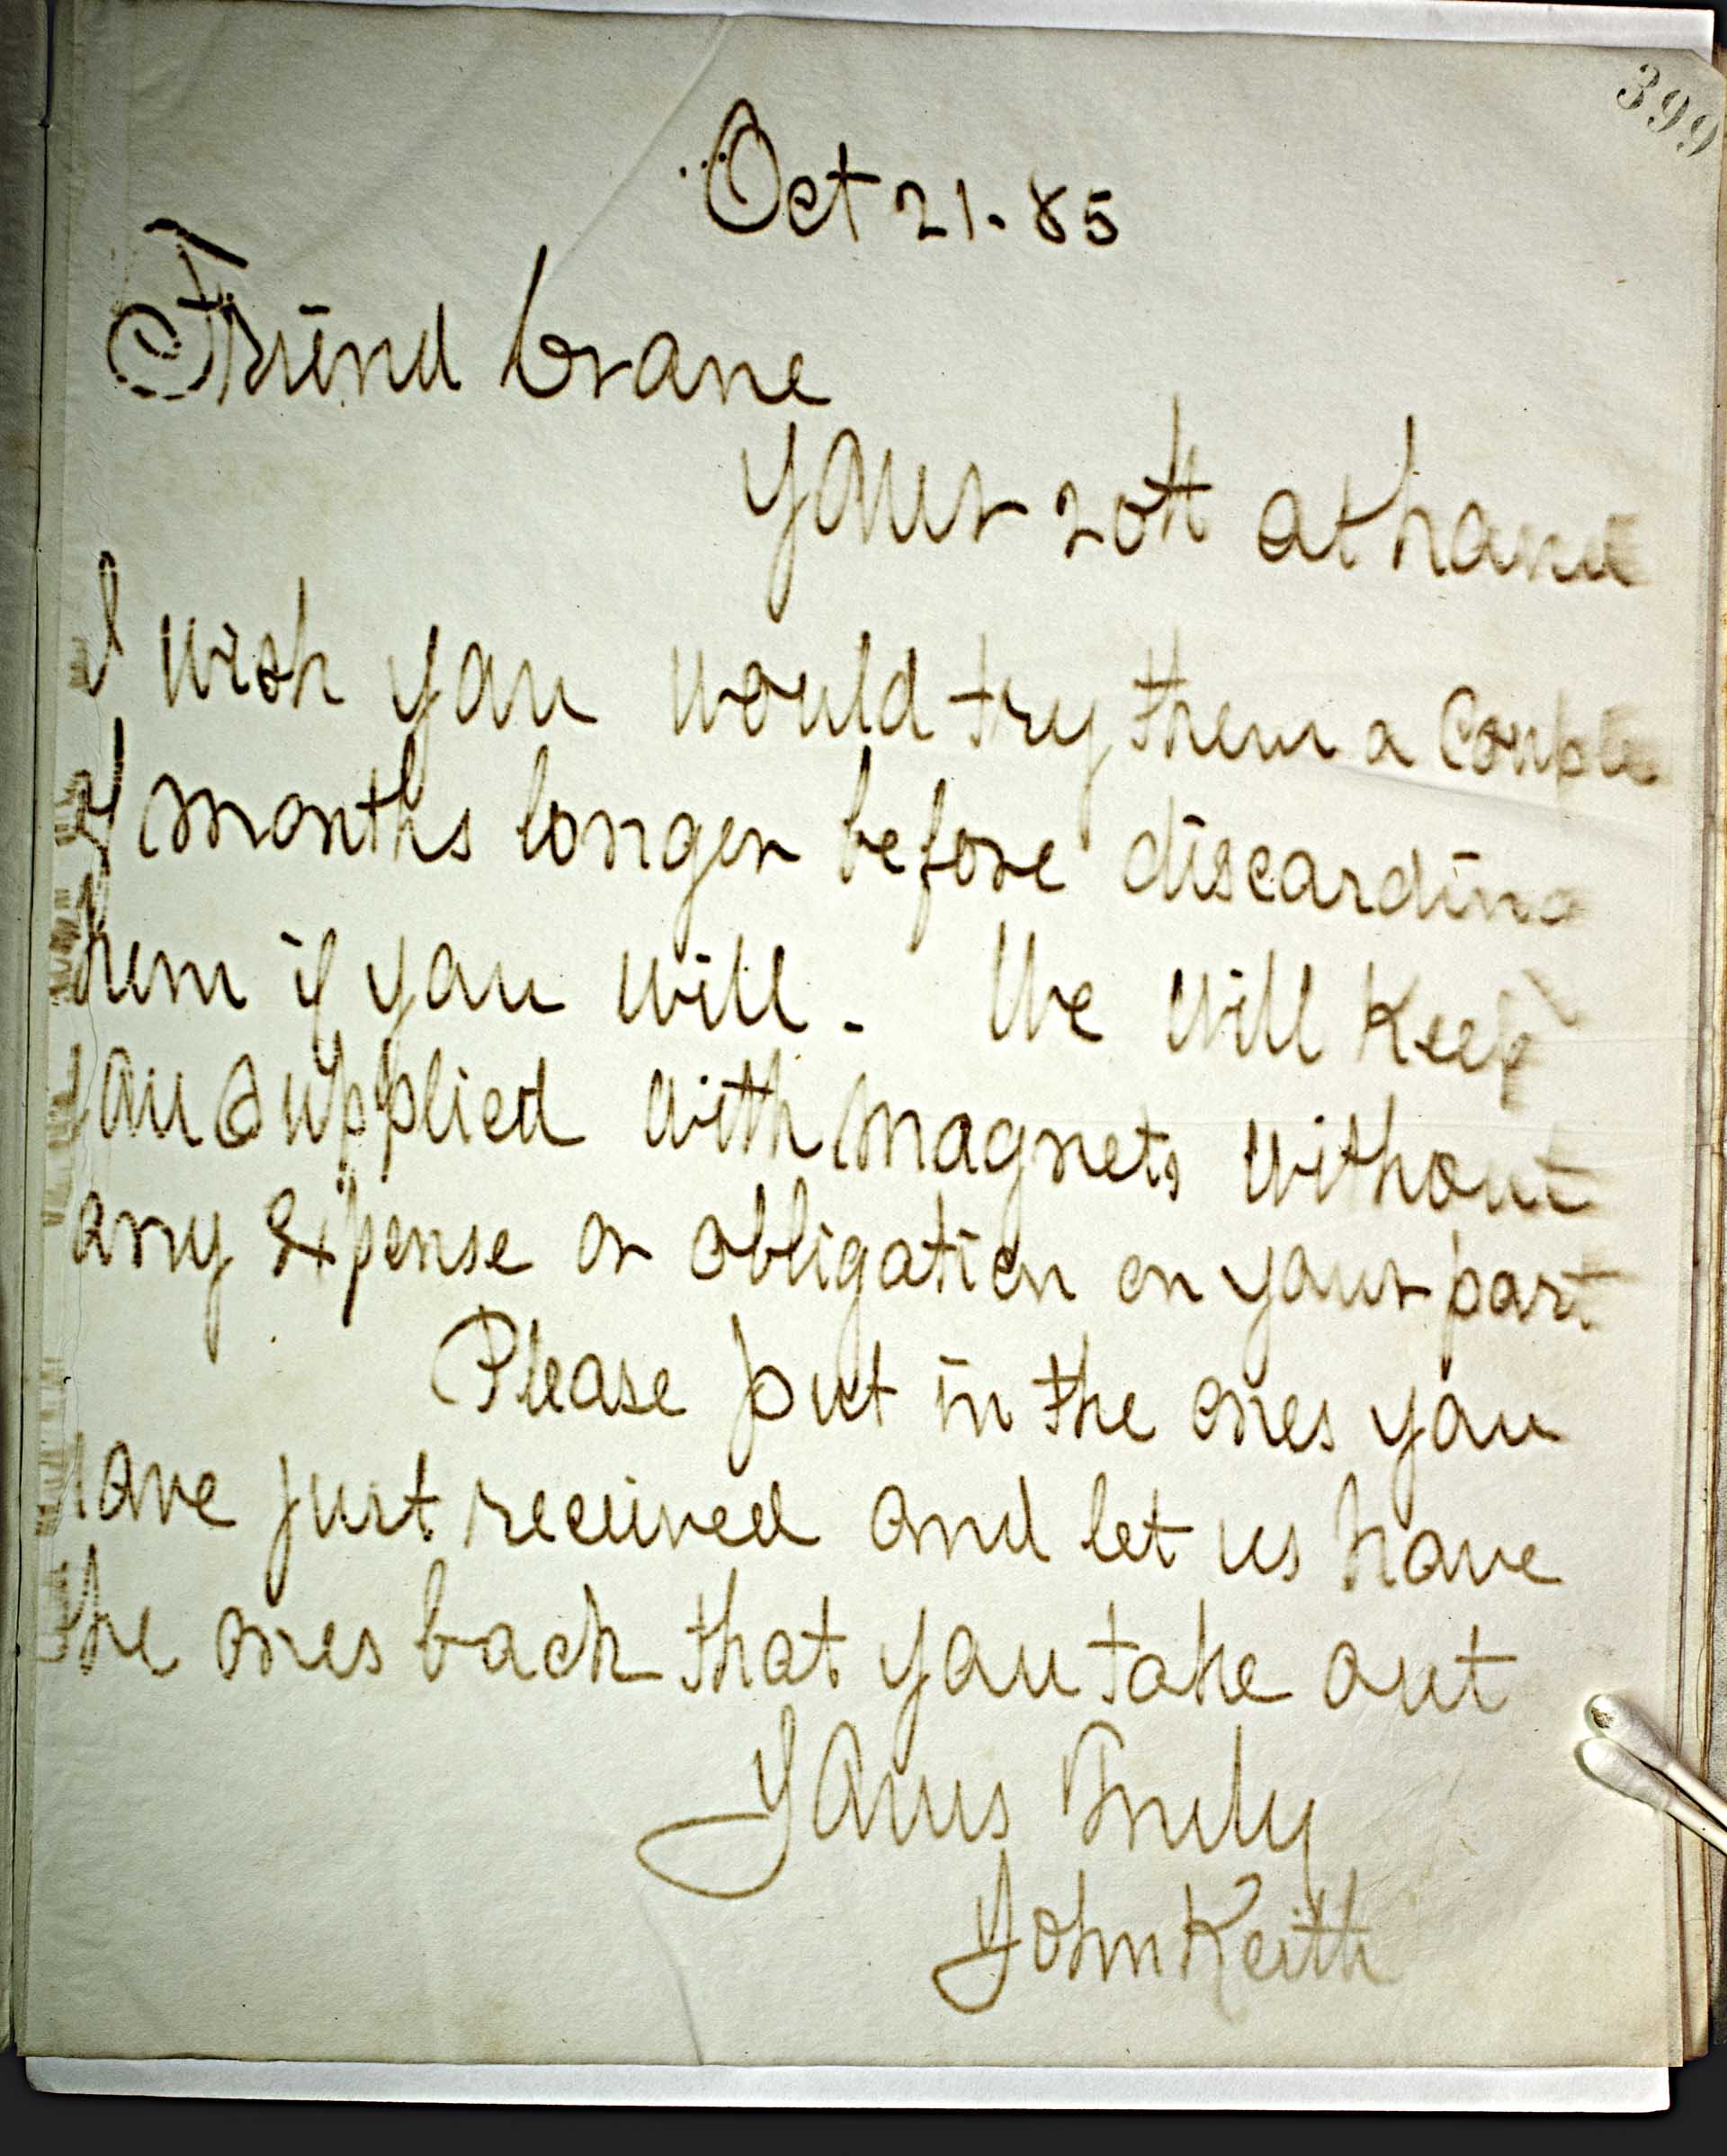 399
Oct 21. 85
Friend Crane
Your 20th at hand
I wish you would try them a couple
of months longer before discarding
them if you will. We will keep
you supplied with magnets without
any expense or obligation on your part
Please put in the ones you
have just received and let us have
the ones back that you take out
Yours Truly
John Keith